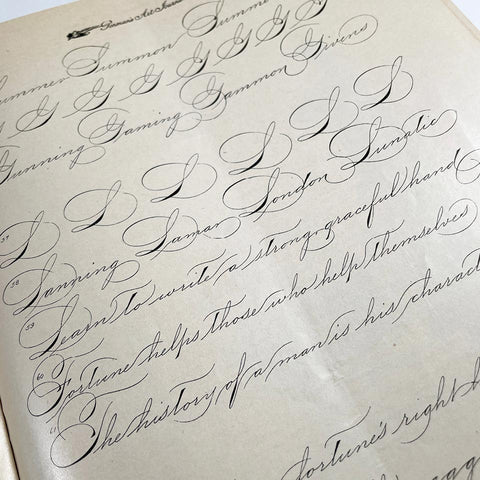 Penman's Art Jour
ummer Summon Summe
G G G G G G G
Gunning Gaming Gammon Givens
37 L L L L L L
38 Lanning Laman London Lunatic
39 Learn to write a strong graceful hand
60 Fortune helps those who help themselves
61 The history of a man is his charact
fortune's right